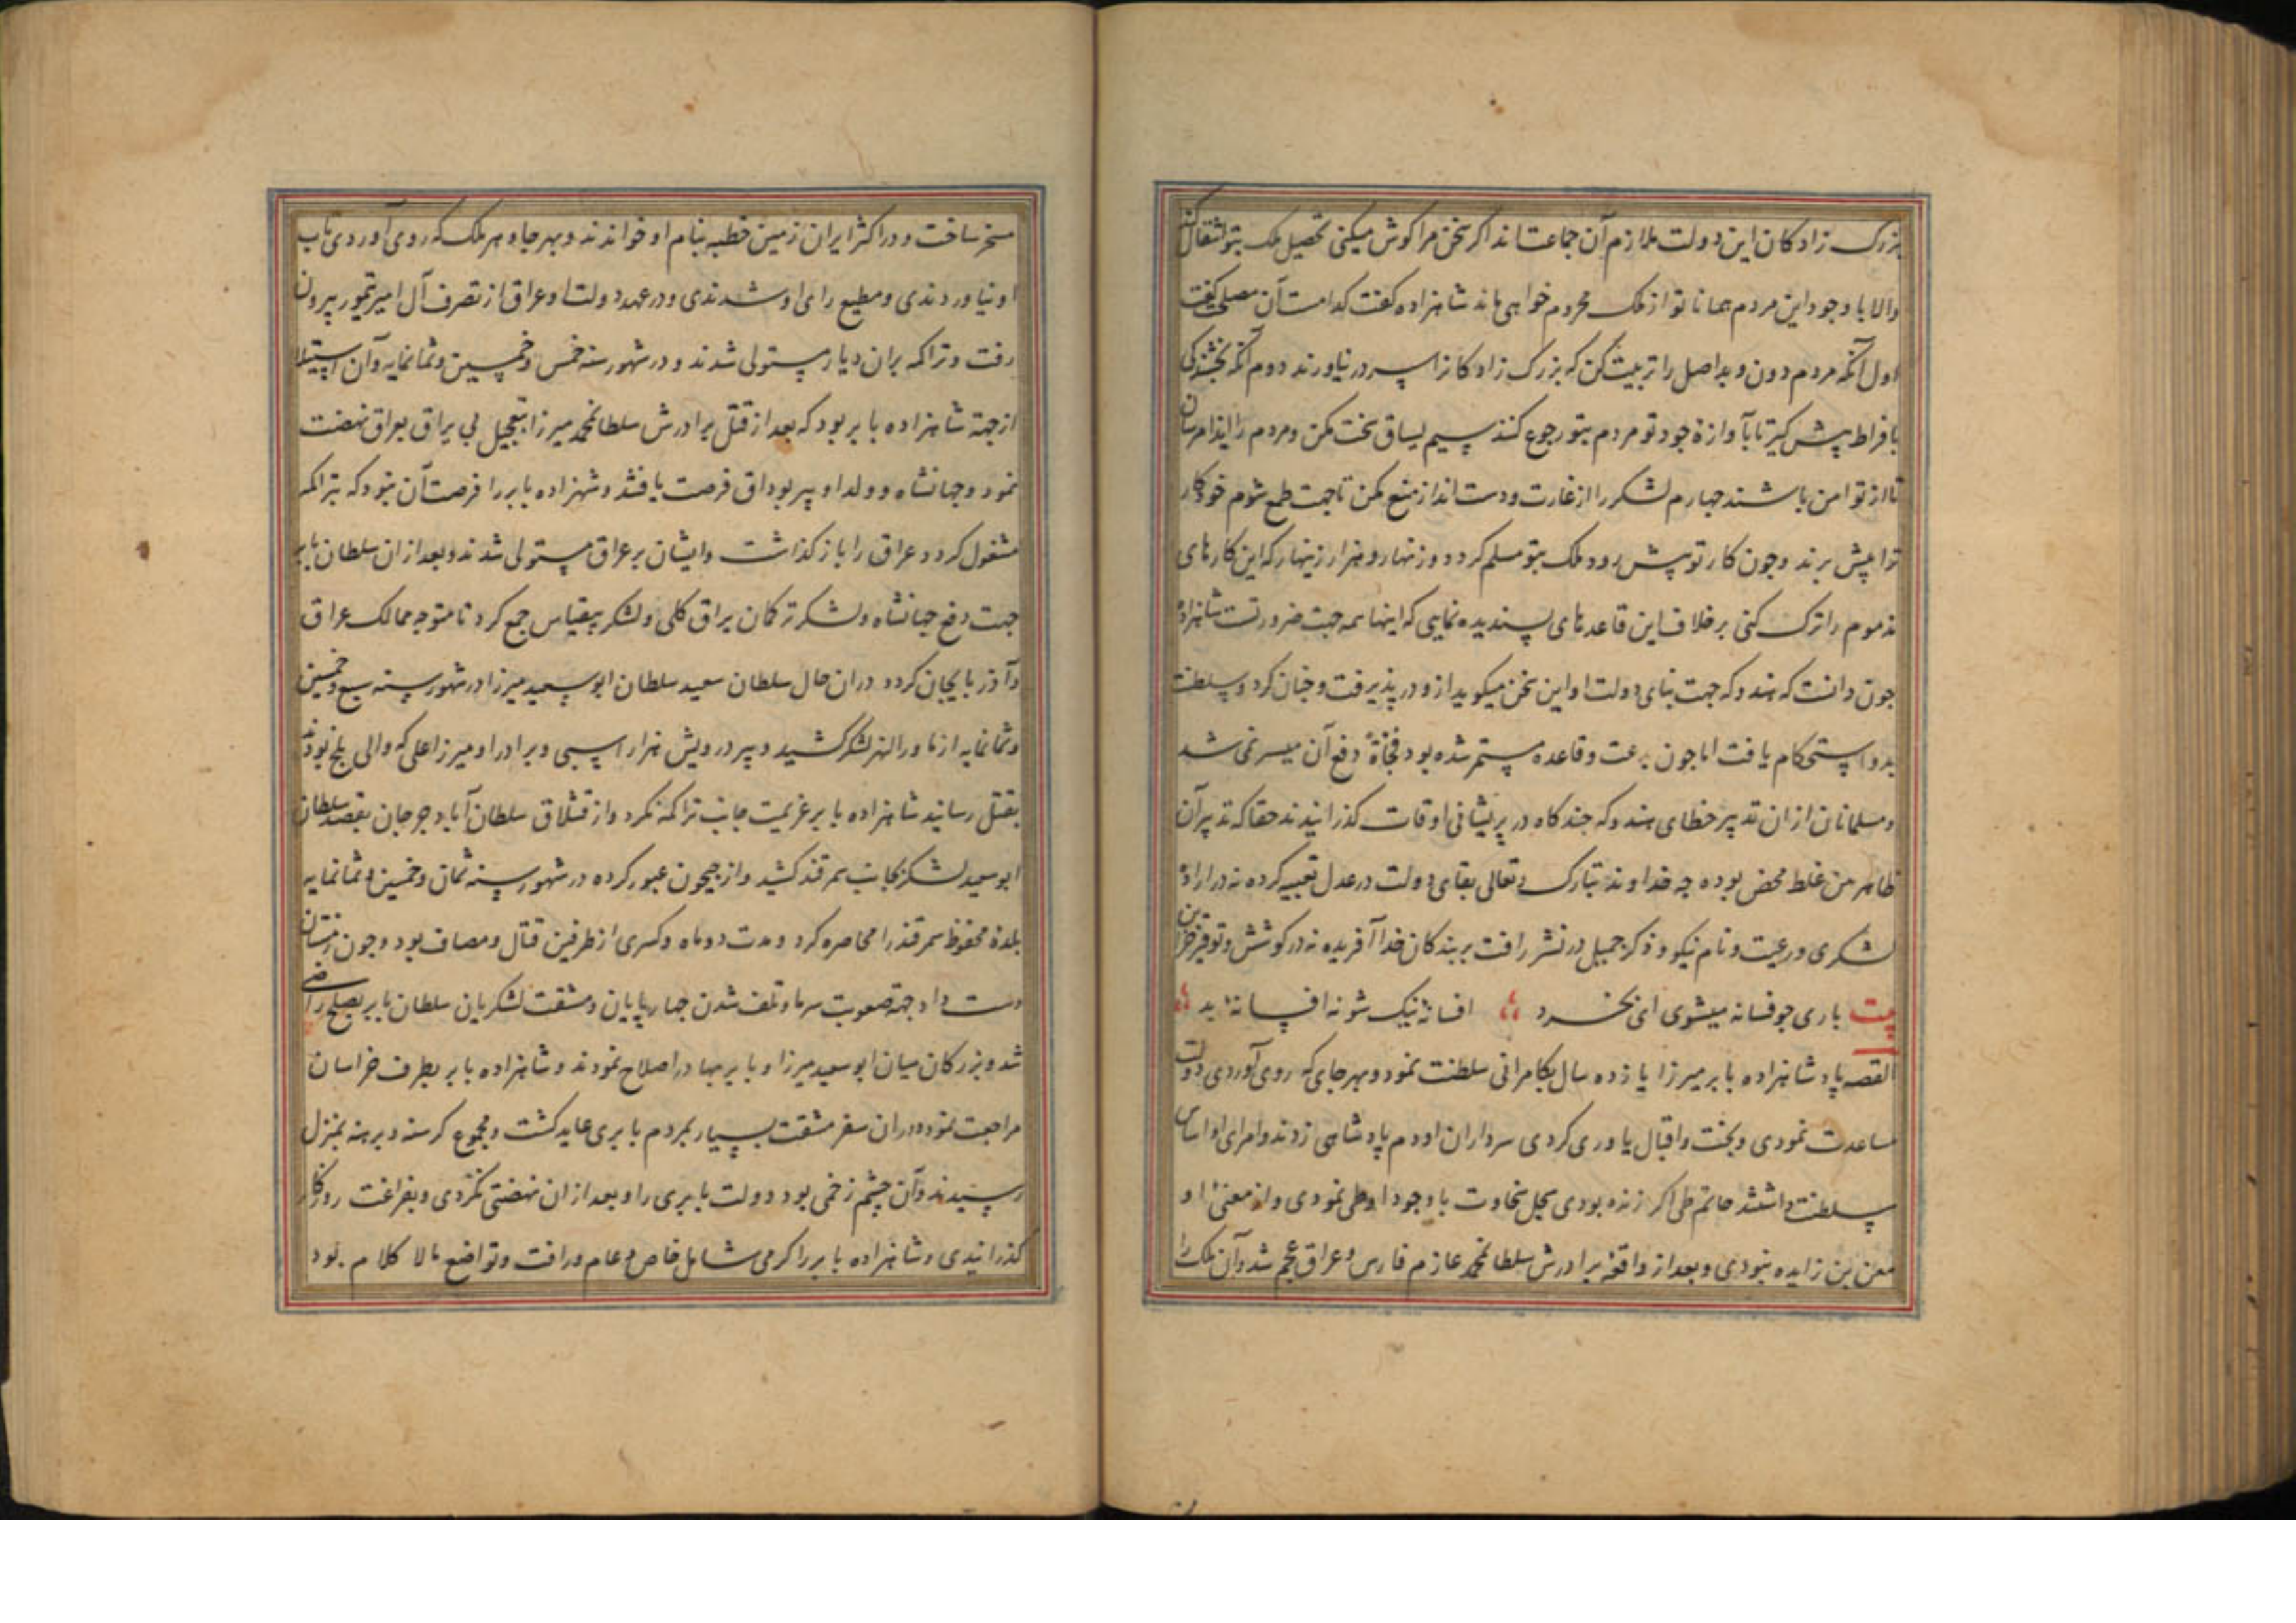 بزرک زادکان این دولت ملازم آن جماعت‌اند اکر سخن مرا کوش میکنی تحصیل ملک بتو انتقال کند
والا با وجود این مردم همانا تو از ملک محروم خواهی ماند شاهزاده کفت کدامست آن مصلحت کفت
اول آنکه مردم دون و بد اصل را تربیت کن که بزرک زادکان ترا سر در نیاورند دوم آنکه بخشندکی
بافراط پیش کیر تا بآوازهٔ جود تو مردم بتو رجوع کنند سیم یساق سخت مکن و مردم را ایذا مرسان
تا از تو امن باشند جهارم لشکر را از غارت و دست انداز منع مکن تا جهت طمع شوم خود کار
ترا پیش برند و جون کار تو پیش رود و ملک بتو مسلم کردد و زنهار و هزار زینهار که این کارهای
مذموم را ترک کنی بر خلاف این قاعدهای پسندیده نمایی که اینها همه جهت ضرورتست شاهزادهٔ
جون دانست که هندوکه جهت بنای دولت او این سخن میکوید ازو در پذیرفت و جنان کرد و سلطنت
بدو استحکام یافت اما جون بدعت و قاعده مستمر شده بود فجأةً دفع آن میسر نمی شد
و مسلمانان از ان تدبیر خطای هندوکه جند کاه در پریشانی اوقات کذرانیدند حقا که تدبیر آن
ظاهر من غلط محض بوده جه خداوند تبارک وتعالی بقای دولت در عدل تعبیه کرده نه در ارادهٔ
لشکری و رعیت و نام نیکو و ذکر جمیل در نشر رافت بر بندکان خدا آفریده نه در کوشش و توفیر خزاین
بیت باری جو فسانه میشوی ای بخرد افسانهٔ نیک شو نه افسانهٔ بد
القصه پادشاهزاده بابر میرزا یازده سال بکامرانی سلطنت نمود و بهر جای که روی آوردی دولت
مساعدت نمودی و بخت و اقبال یاوری کردی سرداران او دم پادشاهی زدند و امرای او اساس
سلطنت داشتند حاتم طی اکر زنده بودی سجل سخاوت با وجود او طی نمودی و از معنیٔ او
معن بن زایده نبودی و بعد از واقعهٔ برادرش سلطانمحمد عازم فارس و عراق عجم شد و آن ملک را
مسخر ساخت و در اکثر ایران زمین خطبه بنام او خواندند و بهر جا و هر ملک که روی آوردی تاب
او نیاوردندی و مطیع رای او شدندی و در عهد دولت او عراق از تصرف آل امیر تیمور بیرون
رفت و تراکمه بران دیار مستولی شدند و در شهور سنه خمس و خمسین و ثمانمایه و آن استیلا
از جهة شاهزاده بابر بود که بعد از قتل برادرش سلطانمحمد میرزا بتعجیل بی یراق بعراق نهضت
نمود و جهانشاه و ولد او پیر بوداق فرصت یافتند و شهزاده بابر را فرصت آن نبود که بتراکمه
مشغول کردد عراق را باز کذاشت و ایشان بر عراق مستولی شدند و بعد از ان سلطان بابر
جهت دفع جهانشاه و لشکر ترکمان یراق کلی و لشکر بیقیاس جمع کرد تا متوجه ممالک عراق
و آذربایجان کردد در ان حال سلطان سعید سلطان ابو سعید میرزا در شهور سنه سبع و خمسین
و ثمانمایه از ماورالنهر لشکر کشید و پیر درویش هزار اسپی و برادر او میرزا علی که والی بلخ بودند
بقتل رسانید شاهزاده بابر عزیمت جانب تراکمه نکرد و از قشلاق سلطان آباد جرجان بقصد سلطان
ابو سعید لشکر بجانب سمرقند کشید و از جیحون عبور کرده در شهور سنه ثمان و خمسین و ثمانمایه
بلدهٔ محفوظ سمرقند را محاصره کرد و مدت دو ماه و کسری از طرفین قتال و مصاف بود و جون زمستان
دست داد جهة صعوبت سرما و تلف شدن جهارپایان و مشقت لشکریان سلطان بابر بصلح راضی
شد و بزرکان میان ابو سعید میرزا و بابر بهادر اصلاح نمودند و شاهزاده بابر بطرف خراسان
مراجعت نمود و در ان سفر مشقت بسیار بمردم بابری عاید کشت و مجموع کرسنه و برهنه بمنزل
رسیدند و آن چشم زخمی بود دولت بابری را و بعد از ان نهضتی نکردی و بفراغت روزکار
کذرانیدی و شاهزاده بابر را کرمی شامل خاص و عام و رافت و تواضع مالا کلام بود